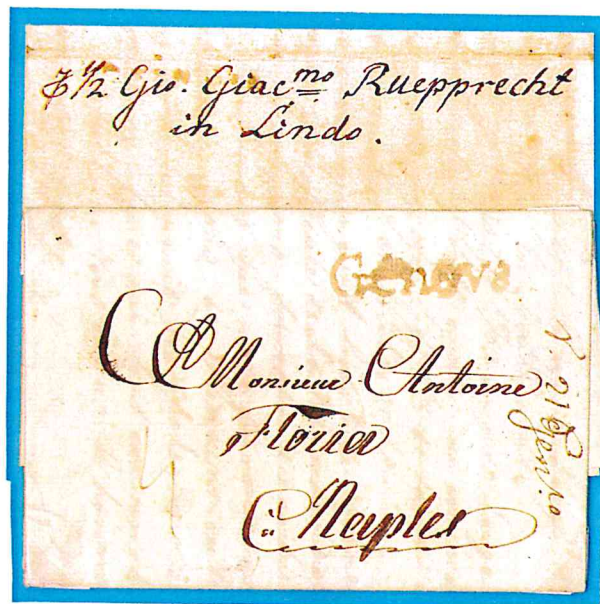 Gio. Giac.mo Ruepprecht
in Lindo.
Genova
A Monsieur Antoine
à Naples
21 Gen.ro